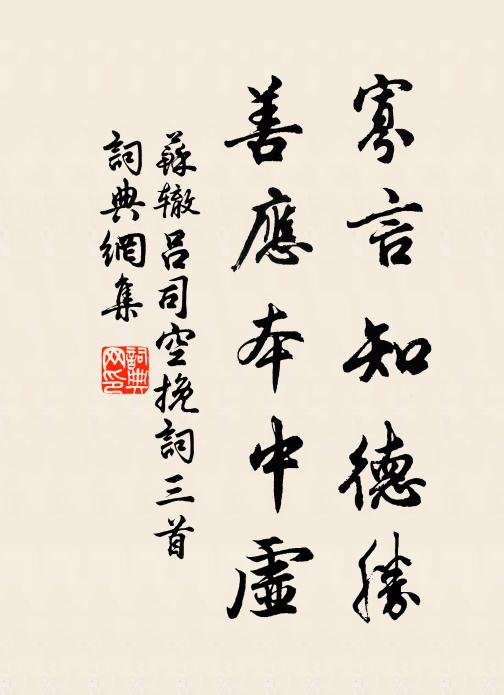 寡言知德勝
善應本中虛
蘇辙呂司空挽詞三首
詞典網集
詞典
网印